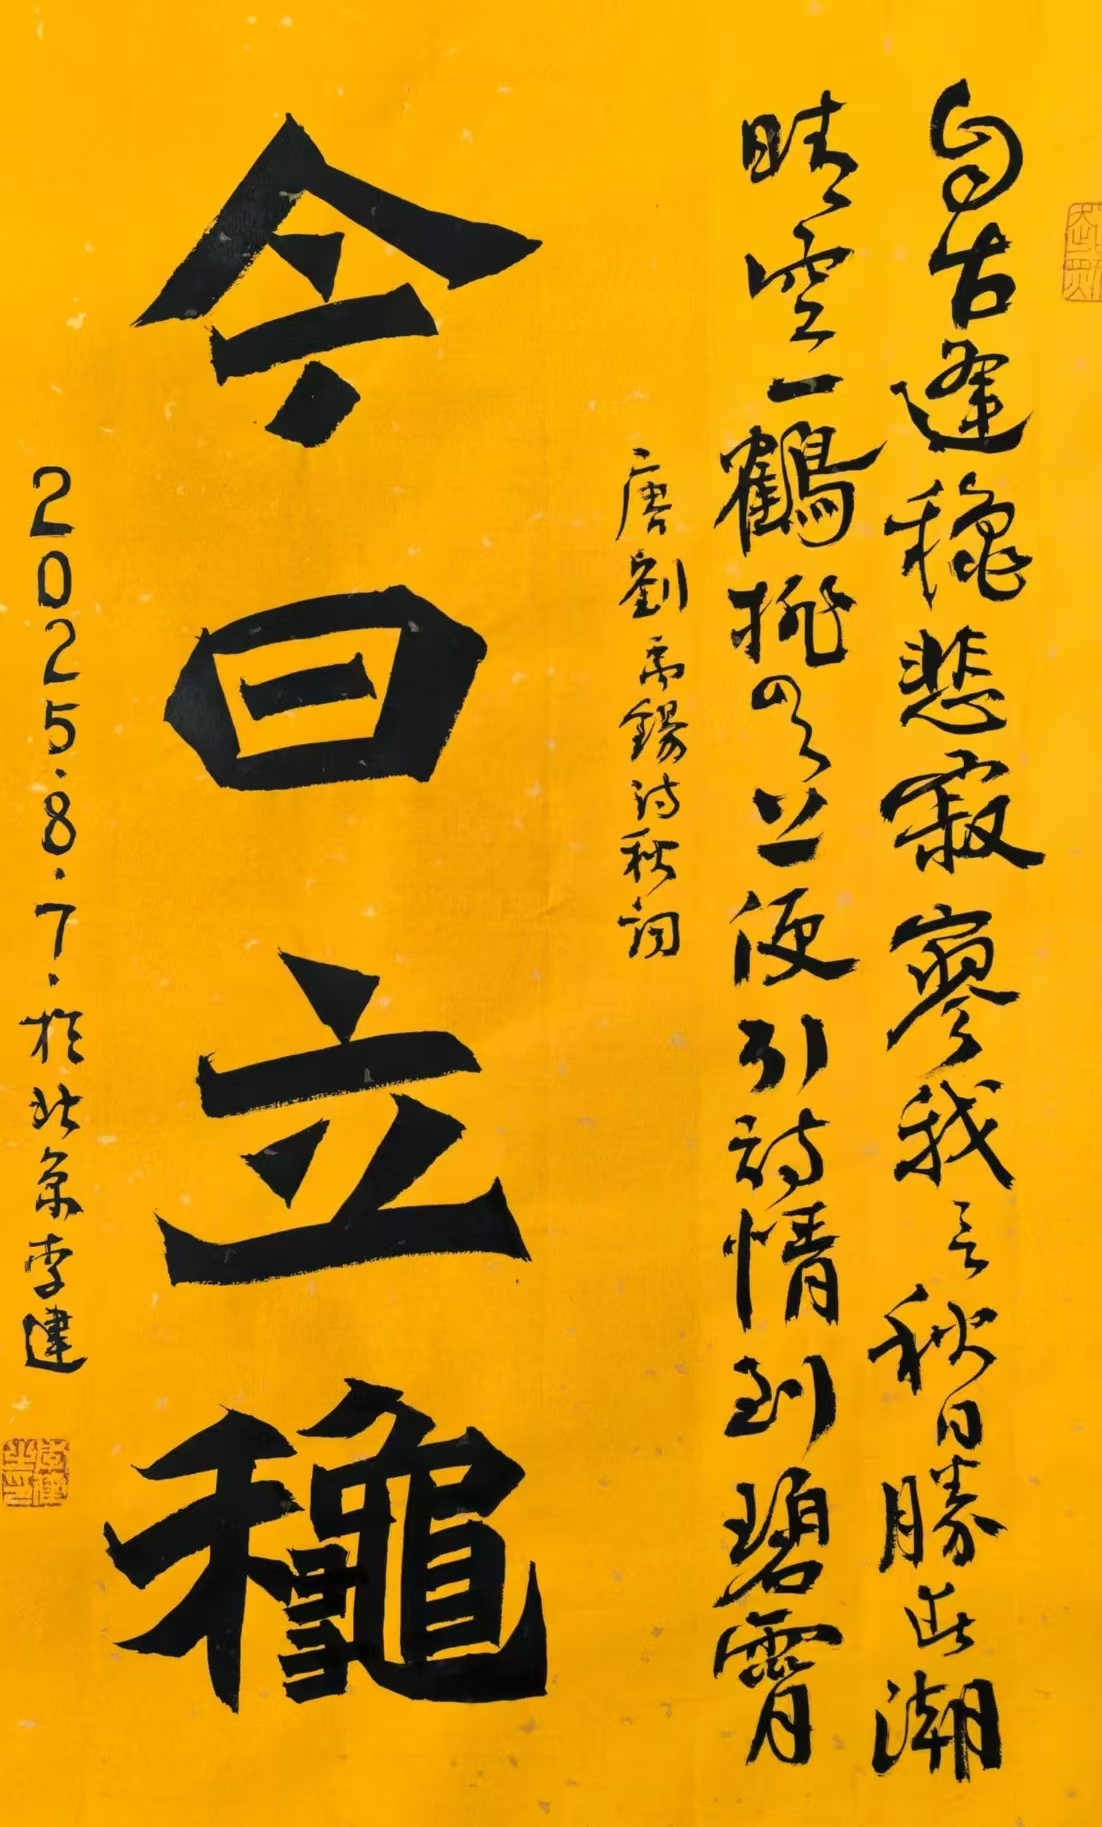 自古逢穐悲寂寥我言秋日勝此潮
晴空一鶴排雲上便引詩情到碧霄
唐劉禹錫詩秋詞
今日立龝
2025.8.7.於北京李建